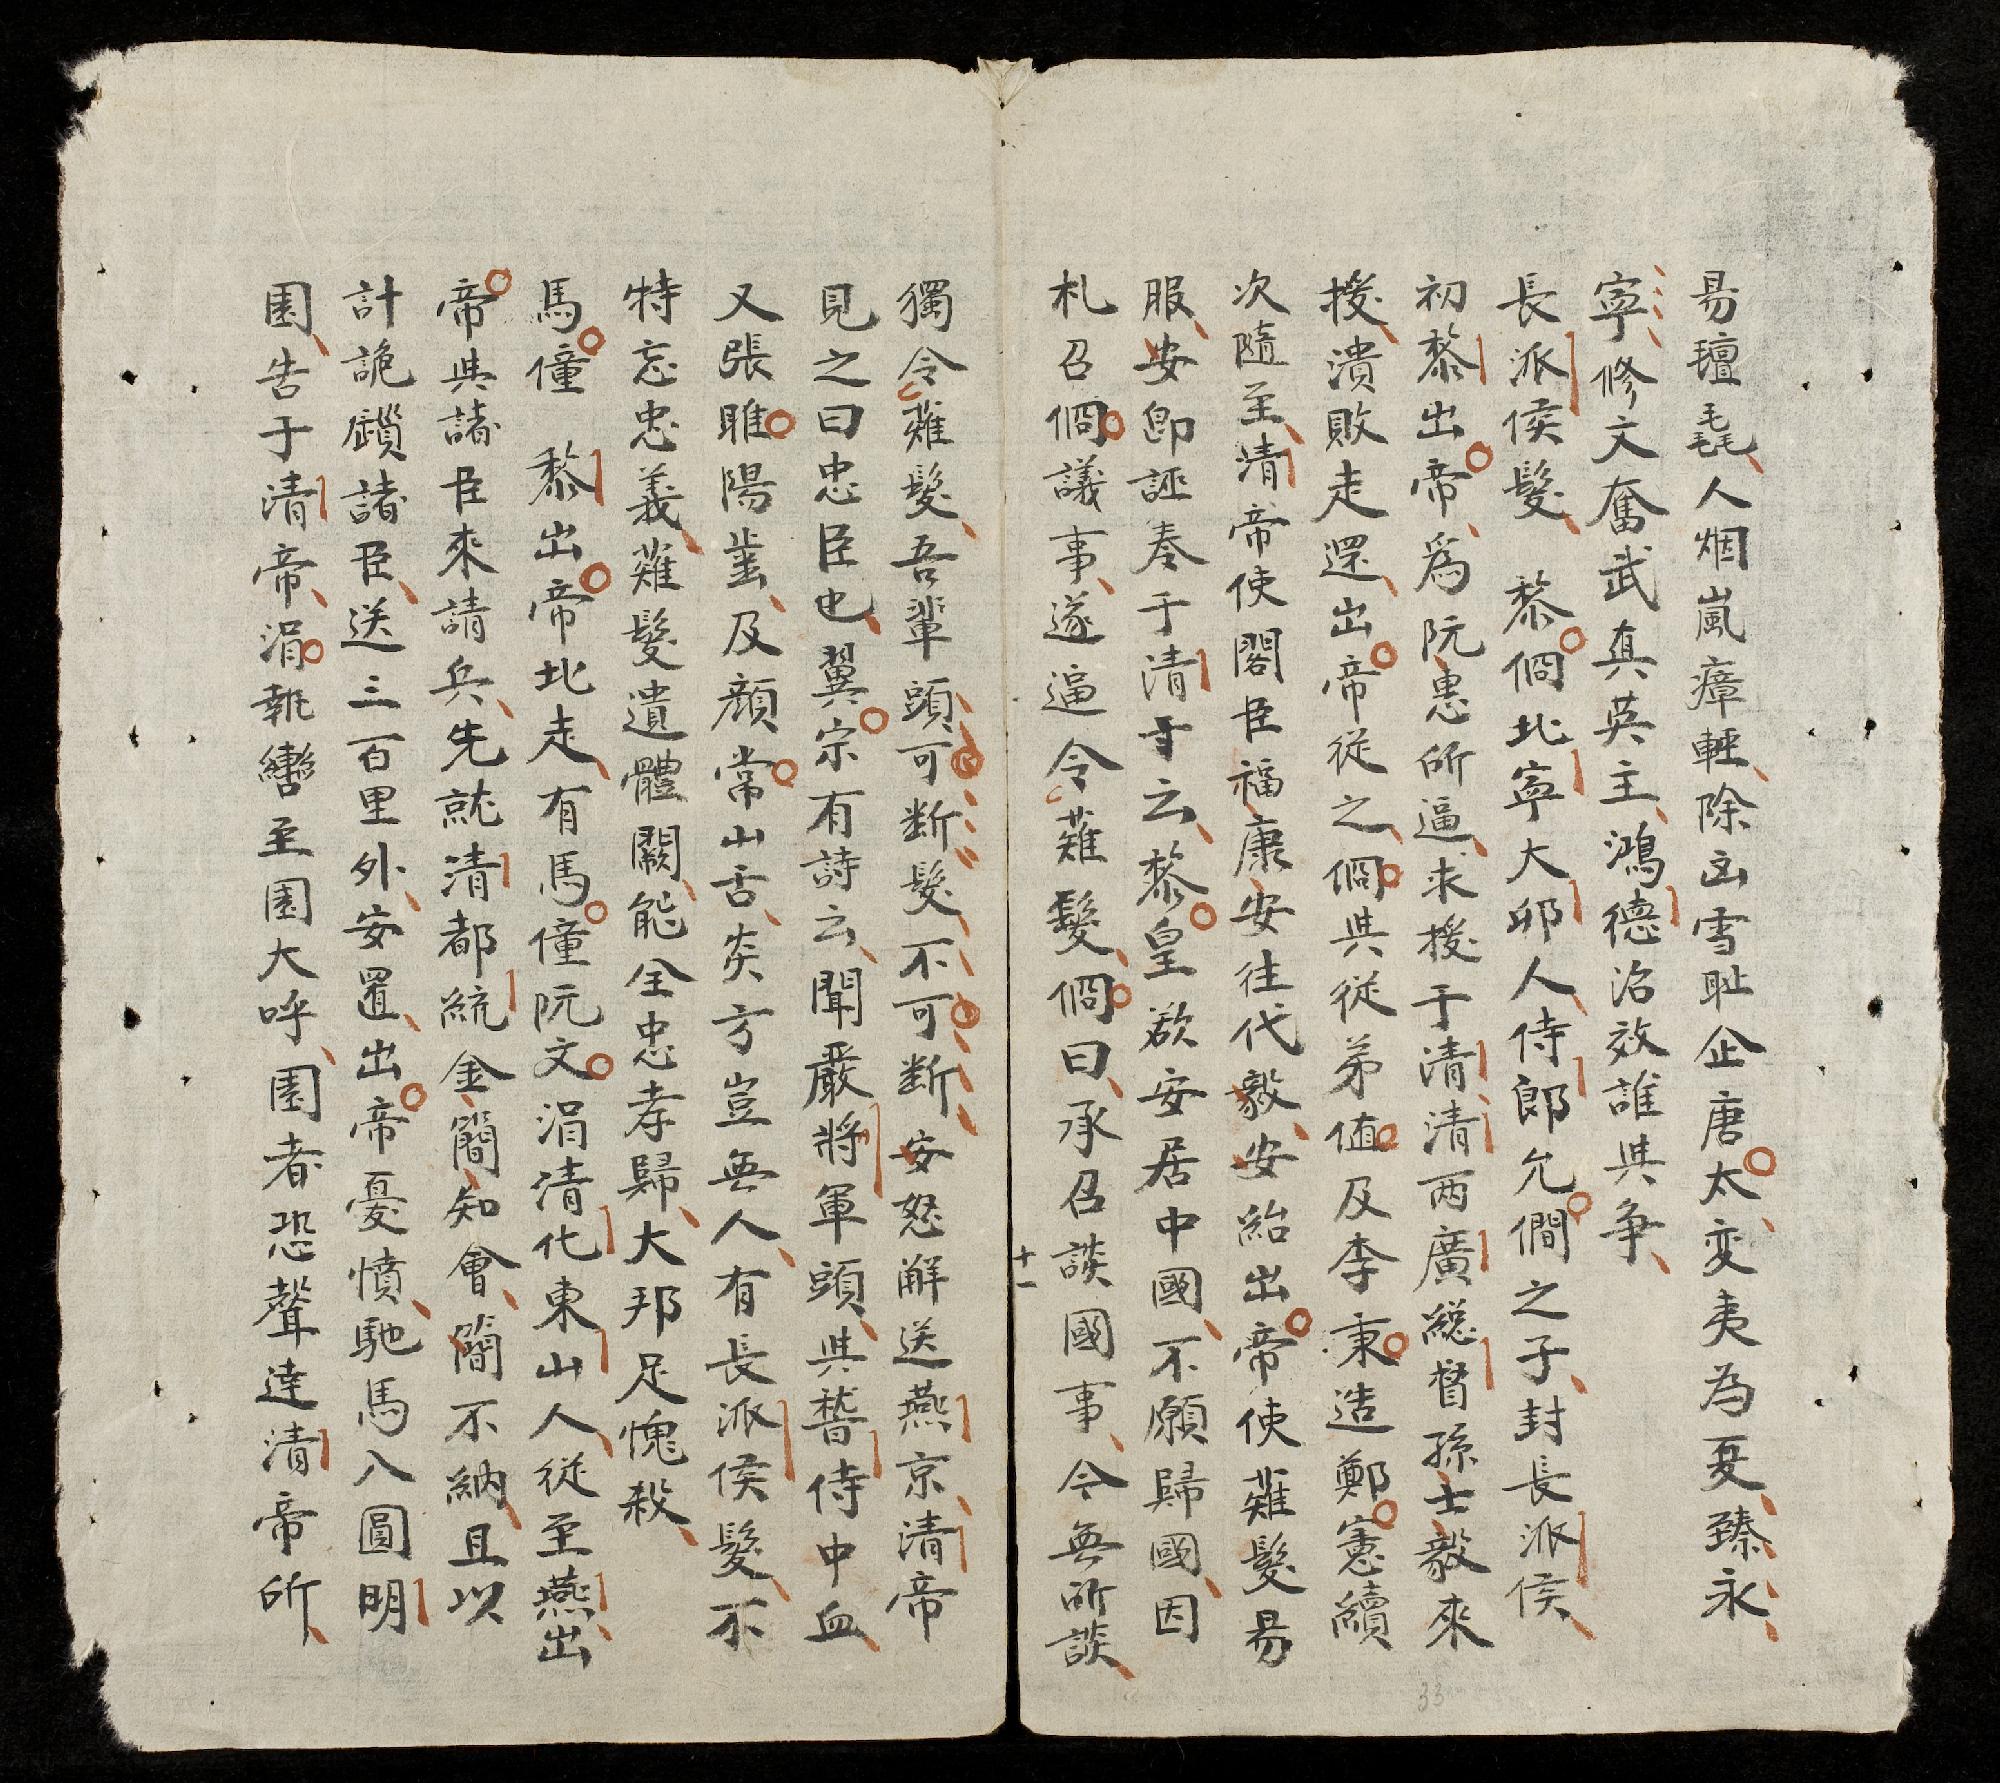 易氊毳人烟嵐瘴輕除凶雪耻企唐太変夷為夏臻永
寧修文奮武真英主鴻德洽效誰與争
長派侯髮　黎侗北寧大卯人侍郎允僩之子封長派侯
初黎出帝為阮惠所逼求援于清清兩廣総督孫士毅來
援潰敗走還出帝從之侗與從弟值及李秉造鄭憲續
次隨至清帝使閣臣福康安往代毅安紿出帝使薙髮易
服安卽誣奏于清主云黎皇欲安居中國不願歸國因
札召侗議事遂逼令薙髮侗曰承召談國事今無所談
十一
獨令薙髮吾輩頭可断髮不可断安怒解送燕京清帝
見之曰忠臣也翼宗有詩云聞嚴將軍頭與嵇侍中血
又張睢陽齒及顔常山舌炎方豈無人有長派侯髮不
特忘忠義薙髮遺體闕能全忠孝歸大邦足愧殺
馬僮　黎出帝北走有馬僮阮文涓清化東山人從至燕出
帝與諸臣來請兵先就清都統金簡知會簡不納且以
計詭鎖諸臣送三百里外安置出帝憂憤馳馬入圓明
園告于清帝涓執轡至園大呼園者恐聲達清帝所
33